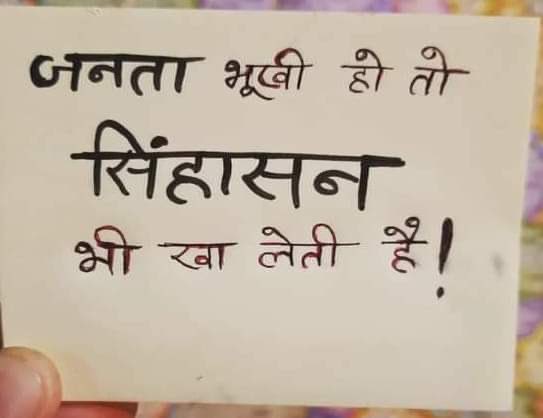 जनता भूखी हो तो
सिंहासन
भी खा लेती है!